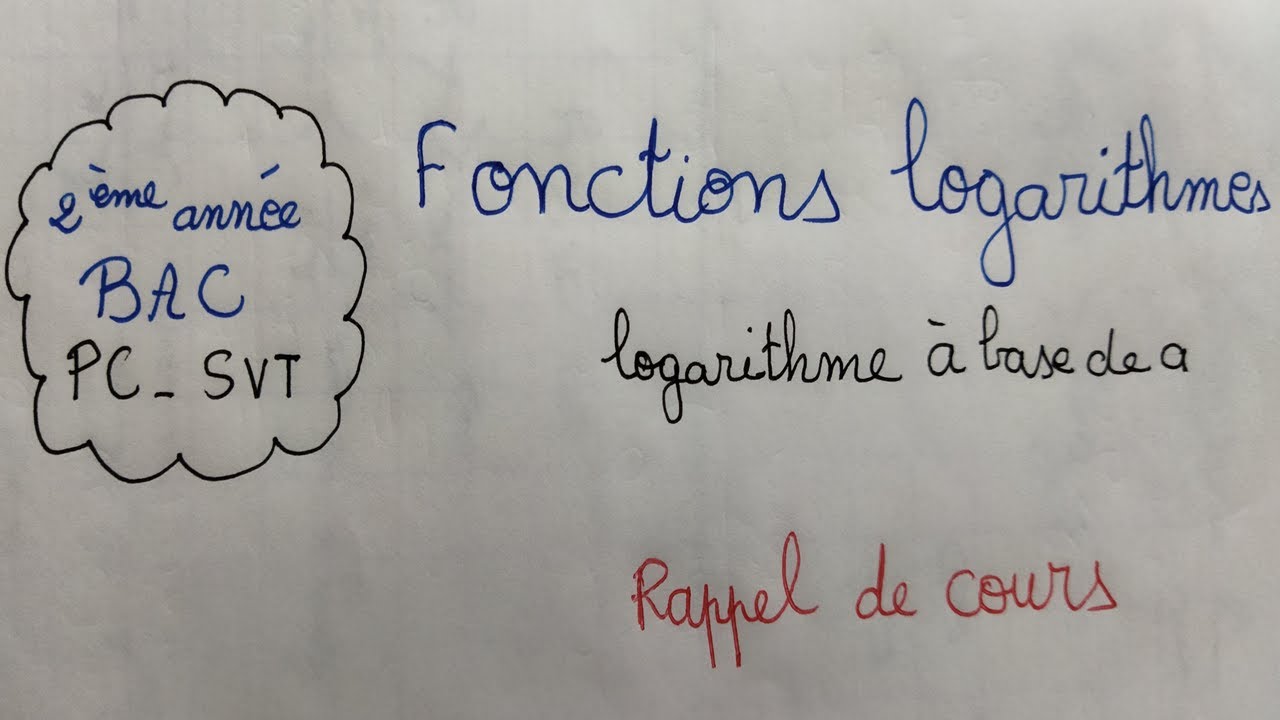 2ème année
BAC
PC - SVT
Fonctions logarithmes
logarithme à base de a
Rappel de cours